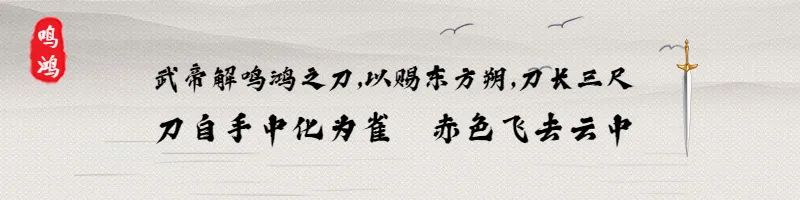 鸣鸿
武帝解鸣鸿之刀,以赐东方朔,刀长三尺
刀自手中化为雀 赤色飞去云中